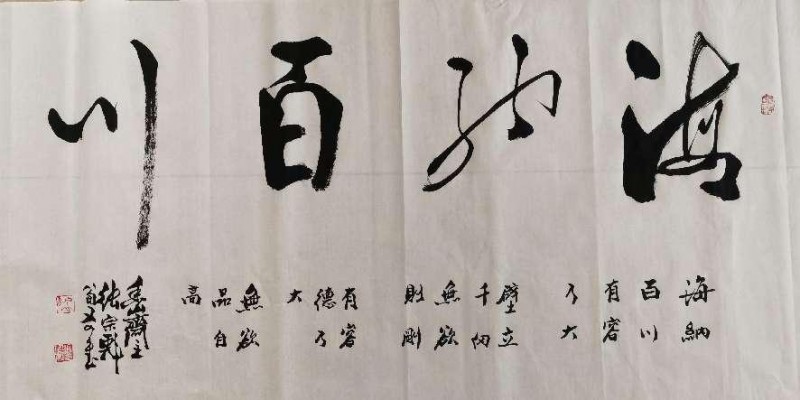 海納百川
海納
百川
有容
乃大
壁立
千仞
無欲
則剛
有容
德乃
大
無欲
品自
高
齋主
張宗